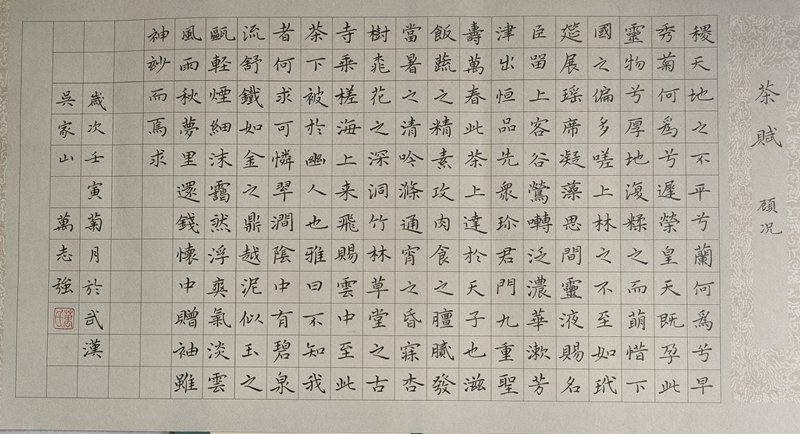 茶賦 頋况
稷天地之不平兮蘭何爲兮早
秀菊何爲兮遲榮皇天既孕此
靈物兮厚地復糅之而萌惜下
國之偏多嗟上林之不至如玳
筵展瑶席凝藻思間靈液賜名
臣留上客谷鶯囀泛濃華漱芳
津出恒品先衆珍君門九重聖
壽萬春此茶上達於天子也滋
飯蔬之精素攻肉食之膻膩發
當暑之清吟滌通宵之昏寐杏
樹桃花之深洞竹林草堂之古
寺乘槎海上来飛賜雲中至此
茶下被於幽人也雅曰不知我
者何求可憐翠澗陰中有碧泉
流舒鐵如金之鼎越泥似玉之
甌輕煙細沫靄然浮爽氣淡雲
風雨秋夢里還錢懷中贈袖雖
神玅而焉求
歲次壬寅菊月於武漢
吳家山 萬志強